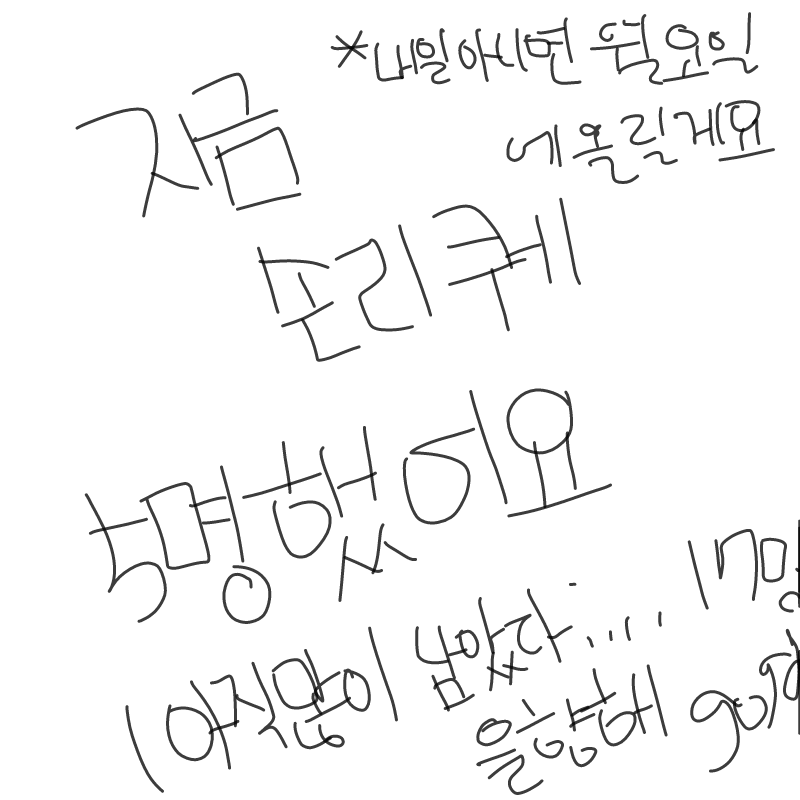 *내일아니면 월요일
에 올릴게요
지금
손리퀘
5명했어요
(아직많이 남았다.... 17명
을향해 gogo